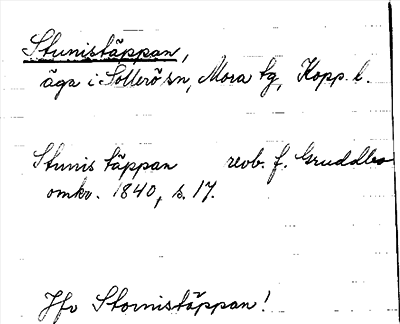 Stunistäppan,
äga i Sollerö sn, Mora tg, Kopp. l.
Stunis täppan revb. f. Gruddbo
omkr. 1840, s. 17.
Jfr Stornistäppan!